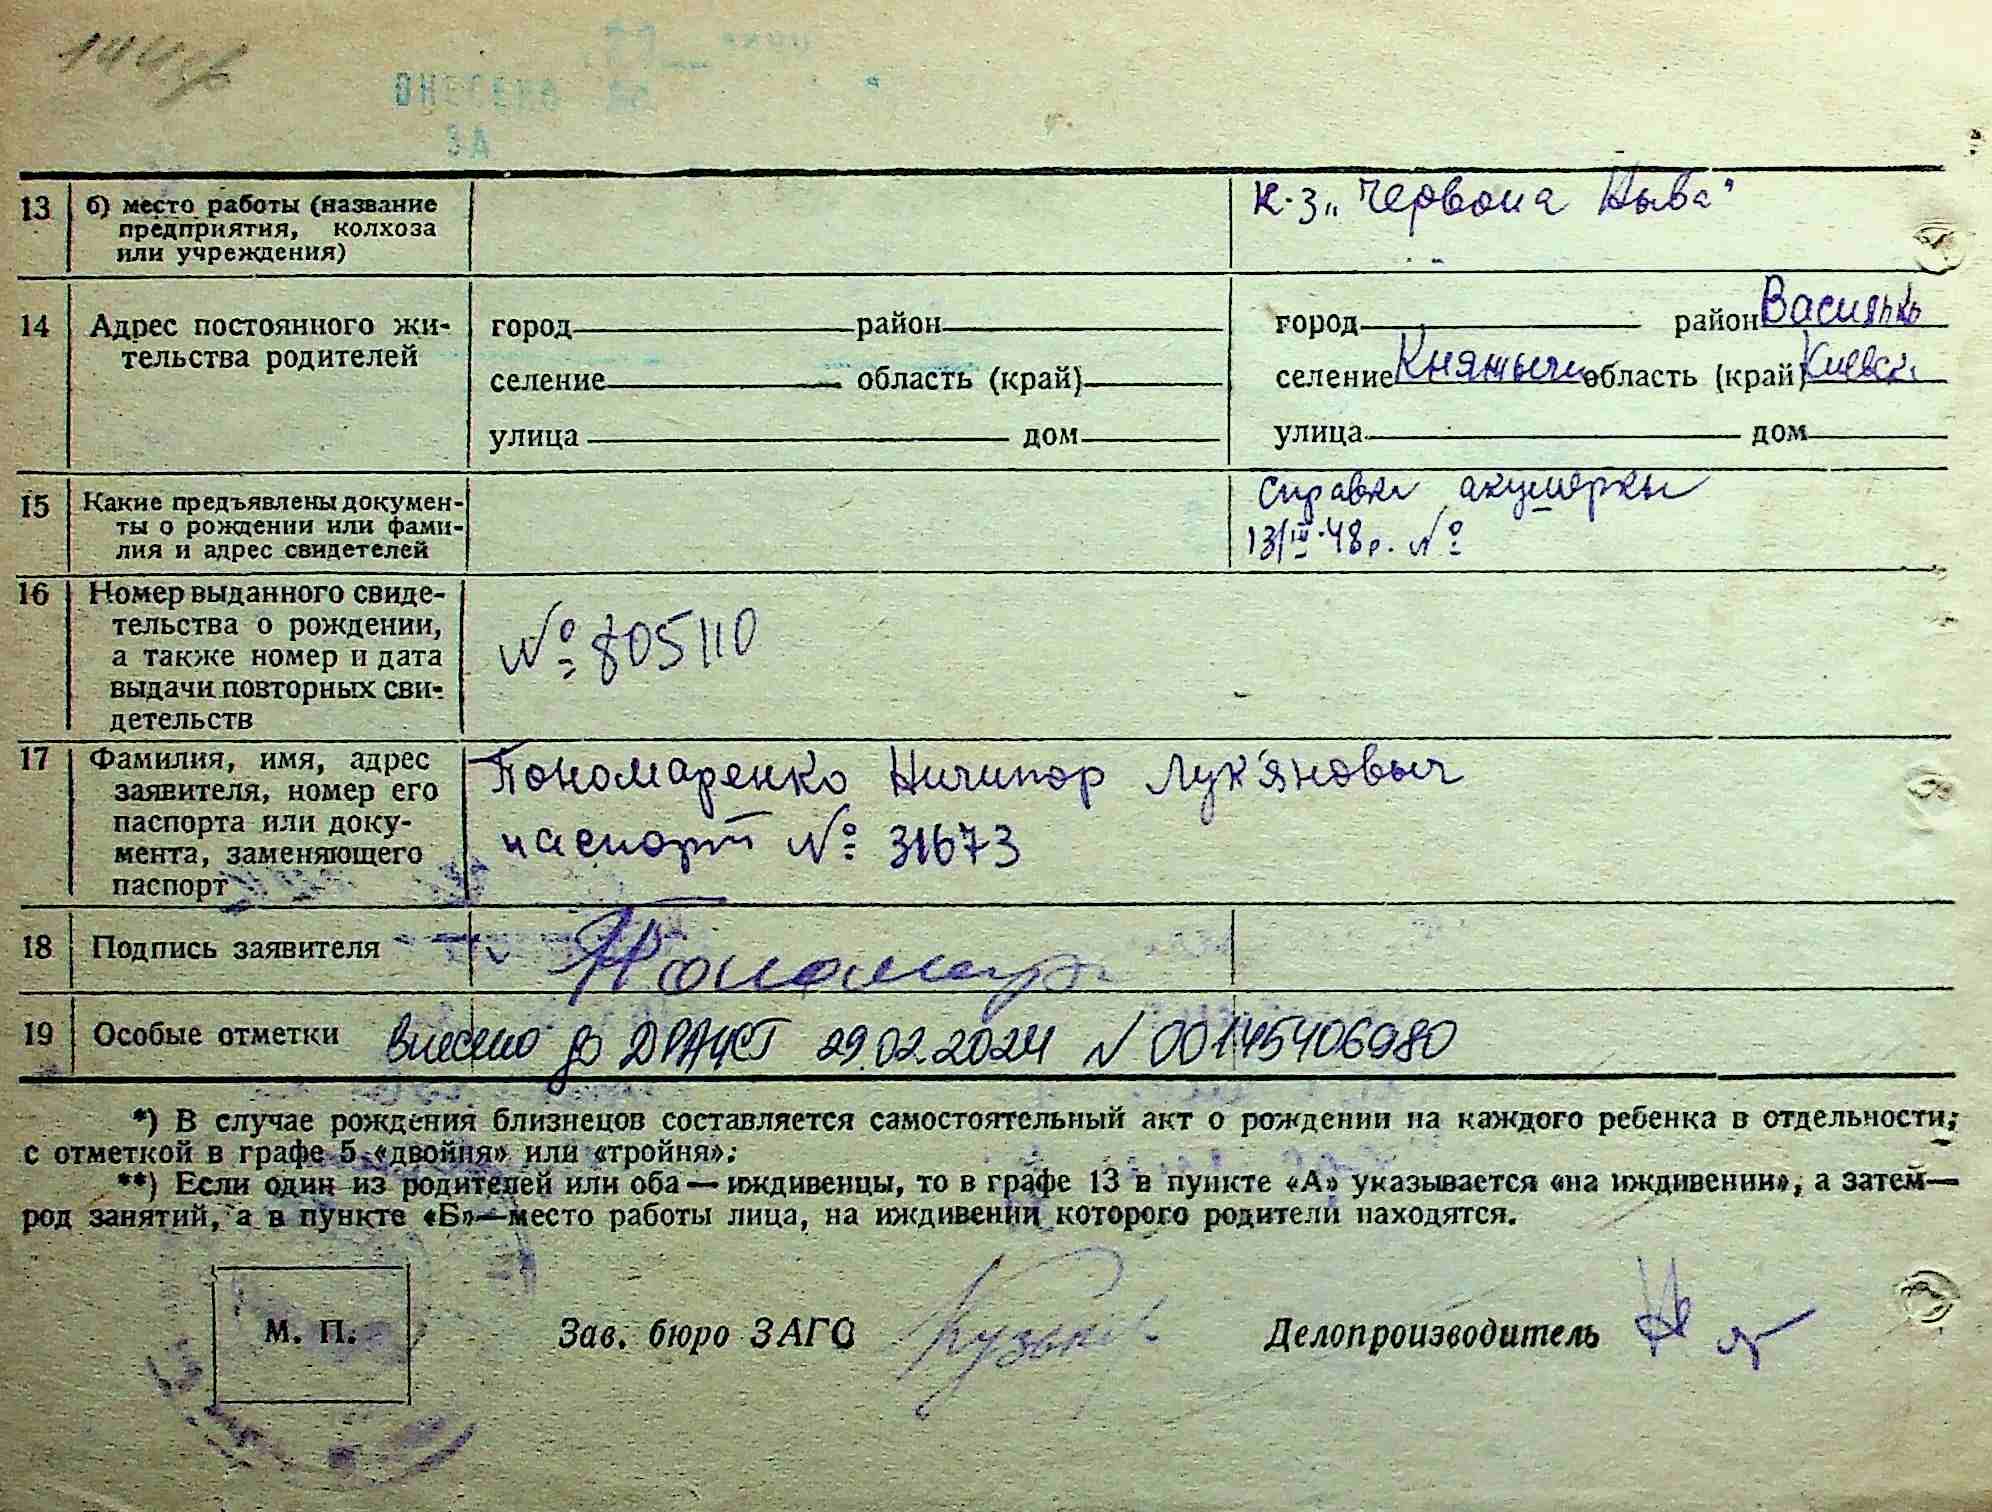 13 б) место работы (название
предприятия, колхоза
или учреждения)
к-з „Червона Ныва"
14 Адрес постоянного жи-
тельства родителей
город район
селение область (край)
улица дом
город район Василькі
селение Княжычи область (край) Киевск.
улица дом
15 Какие предъявлены докумен-
ты о рождении или фами-
лия и адрес свидетелей
Справка акушерки
13/III-48 р. №
16 Номер выданного свиде-
тельства о рождении,
а также номер и дата
выдачи повторных сви-
детельств
№ 805110
17 Фамилия, имя, адрес
заявителя, номер его
паспорта или доку-
мента, заменяющего
паспорт
Пономаренко Ничипор Лук'яновыч
паспорт № 31673
18 Подпись заявителя
v Пономар
19 Особые отметки внесено до ДРАЦСГ 29.02.2024 N 00145406980
*) В случае рождения близнецов составляется самостоятельный акт о рождении на каждого ребенка в отдельности;
с отметкой в графе 5 «двойня» или «тройня»;
**) Если один из родителей или оба — иждивенцы, то в графе 13 в пункте «А» указывается «на иждивении», а затем—
род занятий, а в пункте «Б»—место работы лица, на иждивении которого родители находятся.
М. П.
Зав. бюро ЗАГС
Делопроизводитель